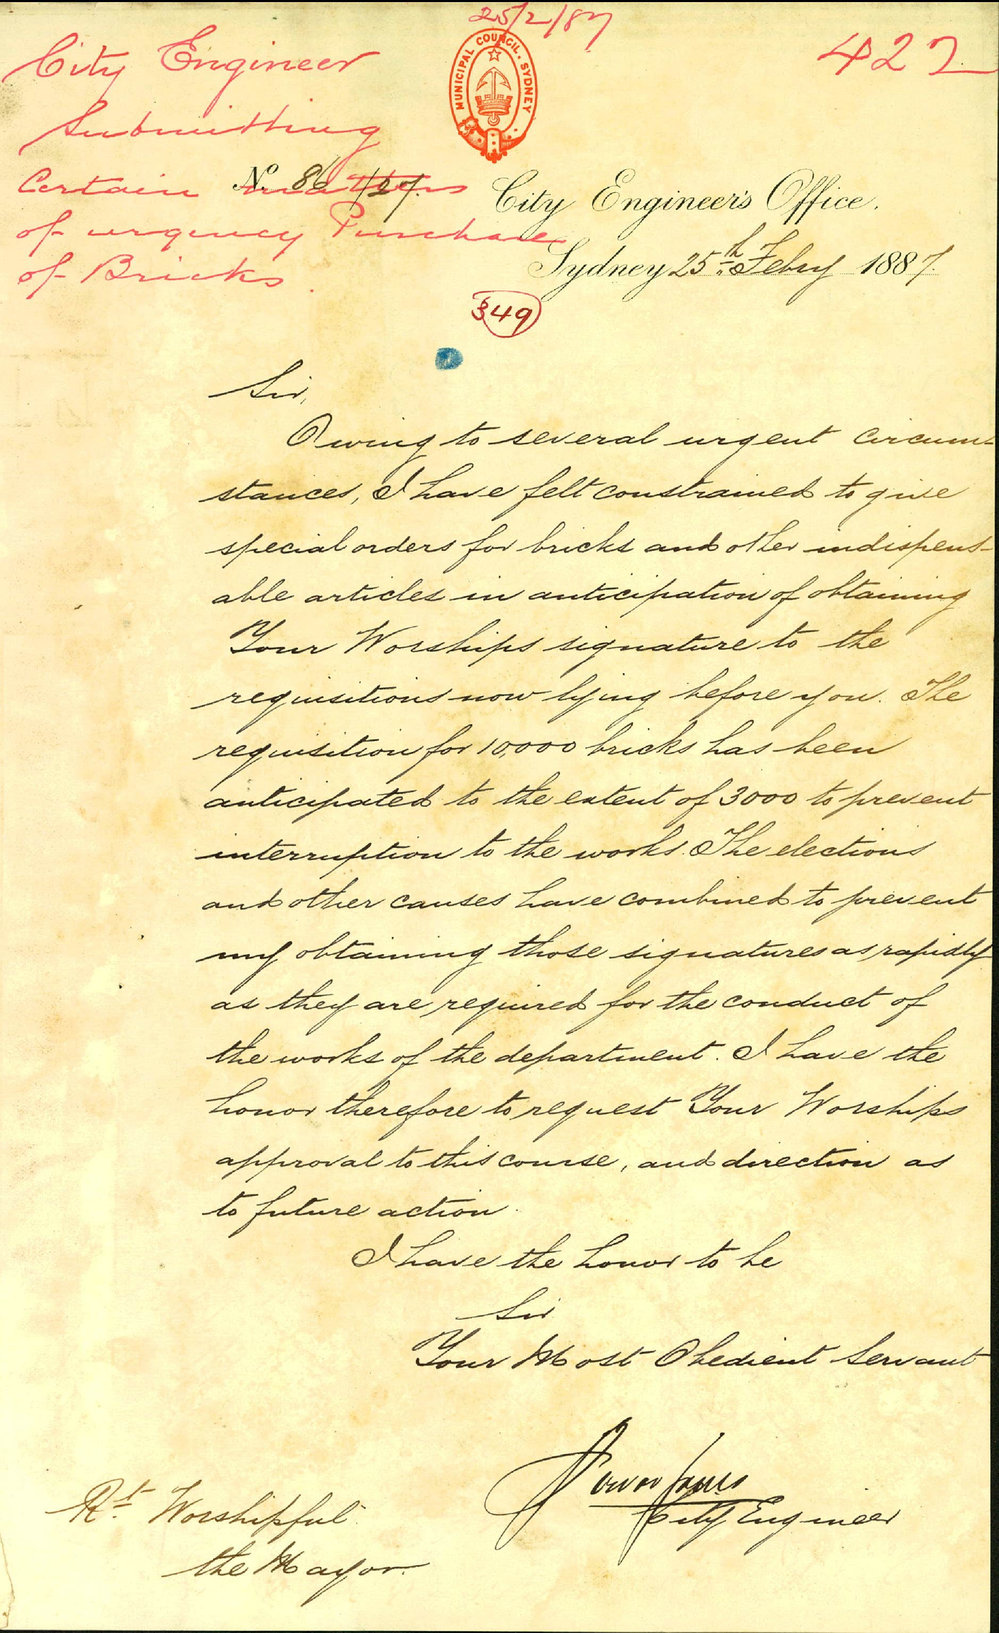 25/2/87
422
City Engineer
Submitting
Certain matters
of urgency Purchase
of Bricks.
MUNICIPAL COUNCIL. SYDNEY
No. 86/87.
City Engineer's Office.
Sydney 25th Febry 1887.
349
Sir,
Owing to several urgent circum-
stances, I have felt constrained to give
special orders for bricks and other indispens-
able articles in anticipation of obtaining
Your Worships signature to the
requisitions now lying before you. The
requisition for 10,000 bricks has been
anticipated to the extent of 3000 to prevent
interruption to the works. The elections
and other causes have combined to prevent
my obtaining those signatures as rapidly
as they are required for the conduct of
the works of the department. I have the
honor therefore to request Your Worships
approval to this course, and direction as
to future action.
I have the honor to be
Sir
Your Most Obedient Servant
City Engineer
Rt. Worshipful
the Mayor.